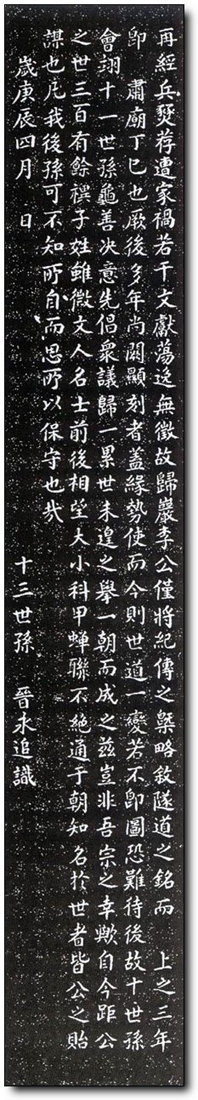 再經兵燹荐遭家禍若干文獻蕩逸無徵故歸巖李公僅將紀傳之槩略敘隧道之銘而 上之三年
卽 肅廟丁巳也厥後多年尚闕顯刻者蓋緣勢使而今則世道一變若不卽圖恐難待後故十世孫
會翊十一世孫龜善決意先倡衆議歸一累世未遑之舉一朝而成之玆豈非吾宗之幸歟自今距公
之世三百有餘禩子姓雖微文人名士前後相望大小科甲蟬聯不絶通于朝知名於世者皆公之貽
謀也凡我後孫可不知所自而思所以保守也哉
歲庚辰四月 日 十三世孫 晉永追識